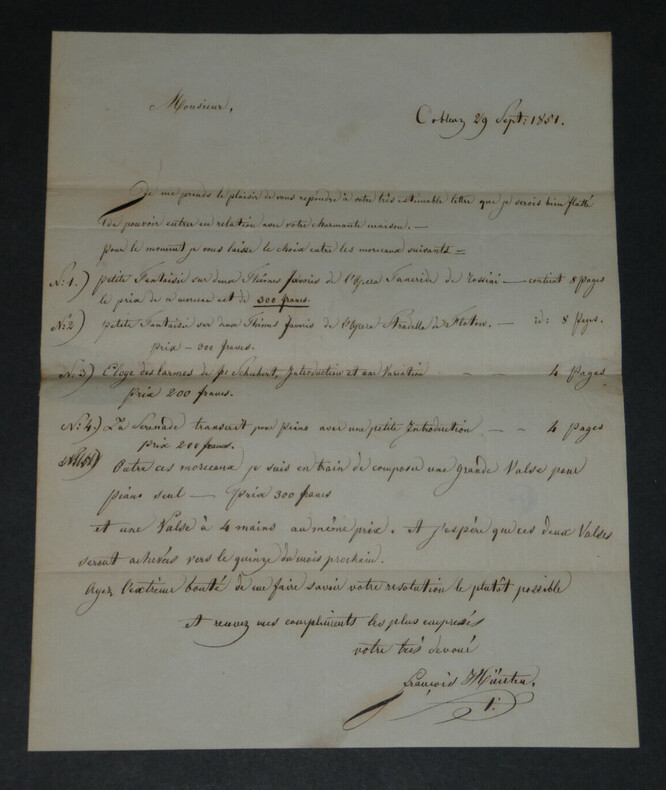 Monsieur,
Coblenz 29 Sept: 1851.
Je me prends le plaisir de vous repondre à votre très estimable lettre que je serois bien flatté
de pouvoir entrer en relation avec votre charmante maison. —
pour le moment je vous laisse le choix entre les morceaux suivants =
No: 1.) petite Fantaisie sur deux Thêmes favoris de l'Opera Tancrède de Rossini — contient 8 pages
le prix de ce morceau est de 300 francs.
No: 2) petite Fantaisie sur deux Thêmes favoris de l'Opera Stradella de Flotow. — id: 8 pages.
prix — 300 francs.
No: 3) Eloge des larmes de Fr Schubert, Introduction et une Variation — — 4 pages
prix 200 francs.
No: 4.) La Serenade transcrit pour piano avec une petite Introduction — — 4 pages
prix 200 francs.
Outre ces morceaux je suis en train de composer une grande Valse pour
piano seul — prix 300 francs
et une Valse à 4 mains au même prix. et j'espère que ces deux Valses
seront achevées vers le quinze du mois prochain.
Ayez l'extrême bonté de me faire savoir votre resolution le plutôt possible
et recevez mes compliments les plus empressés
votre très devoué
François Hünten.